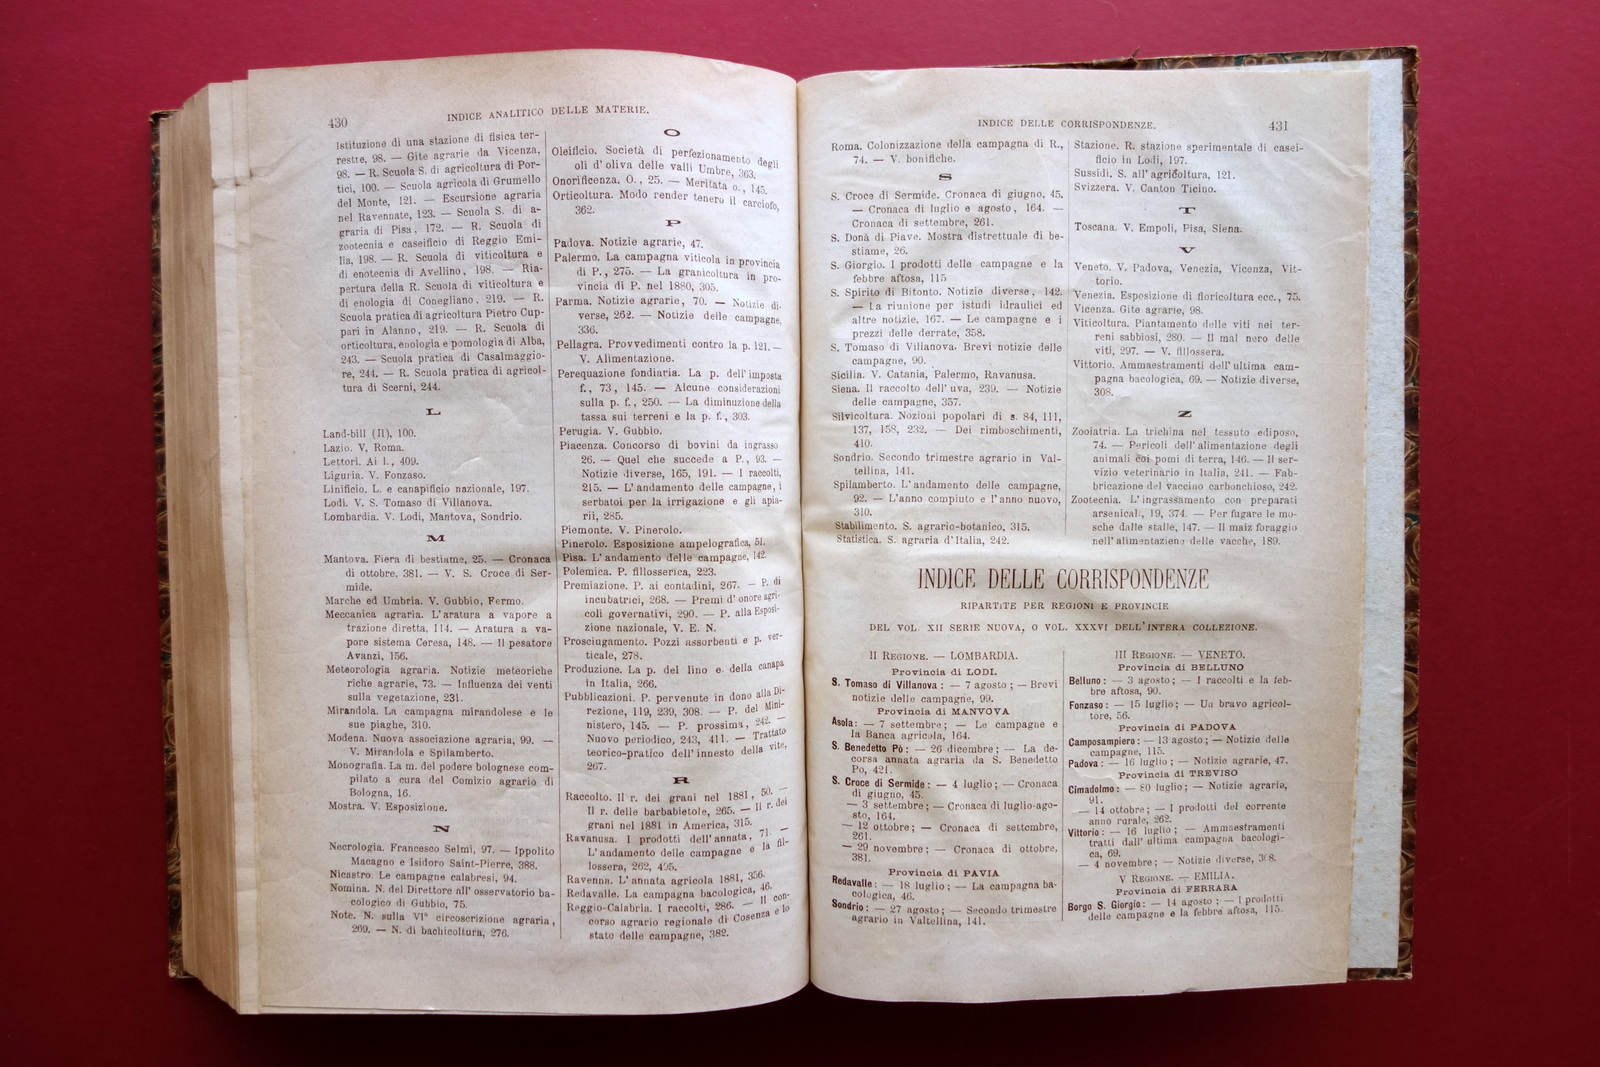 430
INDICE ANALITICO DELLE MATERIE.
Istituzione di una stazione di fisica ter-
restre, 98. — Gite agrarie da Vicenza,
98. — R. Scuola S. di agricoltura di Por-
tici, 100. — Scuola agricola di Grumello
del Monte, 121. — Escursione agraria
nel Ravennate, 123. — Scuola S. di a-
graria di Pisa, 172. — R. Scuola di
zootecnia e caseificio di Reggio Emi-
lia, 198. — R. Scuola di viticoltura e
di enotecnia di Avellino, 198. — Ria-
pertura della R. Scuola di viticoltura e
di enologia di Conegliano, 219. — R.
Scuola pratica di agricoltura Pietro Cup-
pari in Alanno, 219. — R. Scuola di
orticoltura, enologia e pomologia di Alba,
243. — Scuola pratica di Casalmaggio-
re, 244. — R. Scuola pratica di agricol-
tura di Scerni, 244.
L
Land-bill (Il), 100.
Lazio. V. Roma.
Lettori. Ai l., 409.
Liguria. V. Fonzaso.
Linificio. L. e canapificio nazionale, 197.
Lodi. V. S. Tomaso di Villanova.
Lombardia. V. Lodi, Mantova, Sondrio.
M
Mantova. Fiera di bestiame, 25. — Cronaca
di ottobre, 381. — V. S. Croce di Ser-
mide.
Marche ed Umbria. V. Gubbio, Fermo.
Meccanica agraria. L'aratura a vapore a
trazione diretta, 114. — Aratura a va-
pore sistema Ceresa, 148. — Il pesatore
Avanzi, 156.
Meteorologia agraria. Notizie meteoriche
riche agrarie, 73. — Influenza dei venti
sulla vegetazione, 231.
Mirandola. La campagna mirandolese e le
sue piaghe, 310.
Modena. Nuova associazione agraria, 99. —
V. Mirandola e Spilamberto.
Monografia. La m. del podere bolognese com-
pilato a cura del Comizio agrario di
Bologna, 16.
Mostra. V. Esposizione.
N
Necrologia. Francesco Selmi, 97. — Ippolito
Macagno e Isidoro Saint-Pierre, 388.
Nicastro. Le campagne calabresi, 94.
Nomina. N. del Direttore all' osservatorio ba-
cologico di Gubbio, 75.
Note. N. sulla VIª circoscrizione agraria,
269. — N. di bachicoltura, 276.
O
Oleificio. Società di perfezionamento degli
oli d' oliva delle valli Umbre, 363.
Onorificenza. O., 25. — Meritata o., 145.
Orticoltura. Modo render tenero il carciofo,
362.
P
Padova. Notizie agrarie, 47.
Palermo. La campagna viticola in provincia
di P., 275. — La granicoltura in pro-
vincia di P. nel 1880, 305.
Parma. Notizie agrarie, 70. — Notizie di-
verse, 262. — Notizie delle campagne,
336.
Pellagra. Provvedimenti contro la p. 121. —
V. Alimentazione.
Perequazione fondiaria. La p. dell' imposta
f., 73, 145. — Alcune considerazioni
sulla p. f., 250. — La diminuzione della
tassa sui terreni e la p. f., 303.
Perugia. V. Gubbio.
Piacenza. Concorso di bovini da ingrasso
26. — Quel che succede a P., 93. —
Notizie diverse, 165, 191. — I raccolti,
215. — L' andamento delle campagne, i
serbatoi per la irrigazione e gli apia-
rii, 285.
Piemonte. V. Pinerolo.
Pinerolo. Esposizione ampelografica, 51.
Pisa. L' andamento delle campagne, 142.
Polemica. P. fillosserica, 223.
Premiazione. P. ai contadini, 267. — P. di
incubatrici, 268. — Premi d' onore agri-
coli governativi, 290. — P. alla Esposi-
zione nazionale, V. E. N.
Prosciugamento. Pozzi assorbenti e p. ver-
ticale, 278.
Produzione. La p. del lino e della canapa
in Italia, 266.
Pubblicazioni. P. pervenute in dono alla Di-
rezione, 119, 239, 308. — P. del Mini-
nistero, 145. — P. prossima, 242. —
Nuovo periodico, 243, 411. — Trattato
teorico-pratico dell' innesto della vite,
267.
R
Raccolto. Il r. dei grani nel 1881, 50. —
Il r. delle barbabietole, 265. — Il r. dei
grani nel 1881 in America, 315.
Ravanusa. I prodotti dell' annata, 71. —
L' andamento delle campagne e la fil-
lossera, 262, 405.
Ravenna. L' annata agricola 1881, 356.
Redavalle. La campagna bacologica, 46.
Reggio-Calabria. I raccolti, 286. — Il con-
corso agrario regionale di Cosenza e lo
stato delle campagne, 382.
INDICE DELLE CORRISPONDENZE.
431
Roma. Colonizzazione della campagna di R.,
74. — V. bonifiche.
S
S. Croce di Sermide. Cronaca di giugno, 45.
— Cronaca di luglio e agosto, 164. —
Cronaca di settembre, 261.
S. Donà di Piave. Mostra distrettuale di be-
stiame, 26.
S. Giorgio. I prodotti delle campagne e la
febbre aftosa, 115
S. Spirito di Bitonto. Notizie diverse, 142.
— La riunione per istudi idraulici ed
altre notizie, 167. — Le campagne e i
prezzi delle derrate, 358.
S. Tomaso di Villanova. Brevi notizie delle
campagne, 90.
Sicilia. V. Catania, Palermo, Ravanusa.
Siena. Il raccolto dell' uva, 239. — Notizie
delle campagne, 357.
Silvicoltura. Nozioni popolari di s. 84, 111,
137, 158, 232. — Dei rimboschimenti,
410.
Sondrio. Secondo trimestre agrario in Val-
tellina, 141.
Spilamberto. L' andamento delle campagne,
92. — L'anno compiuto e l'anno nuovo,
310.
Stabilimento. S. agrario-botanico, 315.
Statistica. S. agraria d'Italia, 242.
Stazione. R. stazione sperimentale di casei-
ficio in Lodi, 197.
Sussidi. S. all' agricoltura, 121.
Svizzera. V. Canton Ticino.
T
Toscana. V. Empoli, Pisa, Siena.
V
Veneto. V. Padova, Venezia, Vicenza, Vit-
torio.
Venezia. Esposizione di floricoltura ecc., 75.
Vicenza. Gite agrarie, 98.
Viticoltura. Piantamento delle viti nei ter-
reni sabbiosi, 280. — Il mal nero delle
viti, 297. — V. fillossera.
Vittorio. Ammaestramenti dell' ultima cam-
pagna bacologica, 69. — Notizie diverse,
308.
Z
Zooiatria. La trichina nel tessuto adiposo,
74. — Pericoli dell' alimentazione degli
animali coi pomi di terra, 146. — Il ser-
vizio veterinario in Italia, 241. — Fab-
bricazione del vaccino carbonchioso, 242.
Zootecnia. L' ingrassamento con preparati
arsenicali, 19, 374. — Per fugare le mo-
sche dalle stalle, 147. — Il maiz foraggio
nell' alimentazione delle vacche, 189.
INDICE DELLE CORRISPONDENZE
RIPARTITE PER REGIONI E PROVINCIE
DEL VOL. XII SERIE NUOVA, O VOL. XXXVI DELL'INTERA COLLEZIONE.
II REGIONE. — LOMBARDIA.
Provincia di LODI.
S. Tomaso di Villanova: — 7 agosto; — Brevi
notizie delle campagne, 99.
Provincia di MANVOVA
Asola: — 7 settembre; — Le campagne e
la Banca agricola, 164.
S. Benedetto Pò: — 26 dicembre; — La de-
corsa annata agraria da S. Benedetto
Po, 421.
S. Croce di Sermide: — 4 luglio; — Cronaca
di giugno, 45.
— 3 settembre; — Cronaca di luglio-ago-
sto, 164.
— 12 ottobre; — Cronaca di settembre,
261.
— 29 novembre; — Cronaca di ottobre,
381.
Provincia di PAVIA
Redavalle: — 18 luglio; — La campagna ba-
cologica, 46.
Sondrio: — 27 agosto; — Secondo trimestre
agrario in Valtellina, 141.
III REGIONE. — VENETO.
Provincia di BELLUNO
Belluno: — 3 agosto; — I raccolti e la feb-
bre aftosa, 90.
Fonzaso: — 15 luglio; — Un bravo agricol-
tore, 56.
Provincia di PADOVA
Camposampiero: — 13 agosto; — Notizie delle
campagne, 115.
Padova: — 16 luglio; — Notizie agrarie, 47.
Provincia di TREVISO
Cimadolmo: — 30 luglio; — Notizie agrarie,
91.
— 14 ottobre; — I prodotti del corrente
anno rurale, 262.
Vittorio: — 16 luglio; — Ammaestramenti
tratti dall' ultima campagna bacologi-
ca, 69.
— 4 novembre; — Notizie diverse, 308.
V REGIONE. — EMILIA.
Provincia di FERRARA
Borgo S. Giorgio: — 14 agosto; — I prodotti
delle campagne e la febbre aftosa, 115.